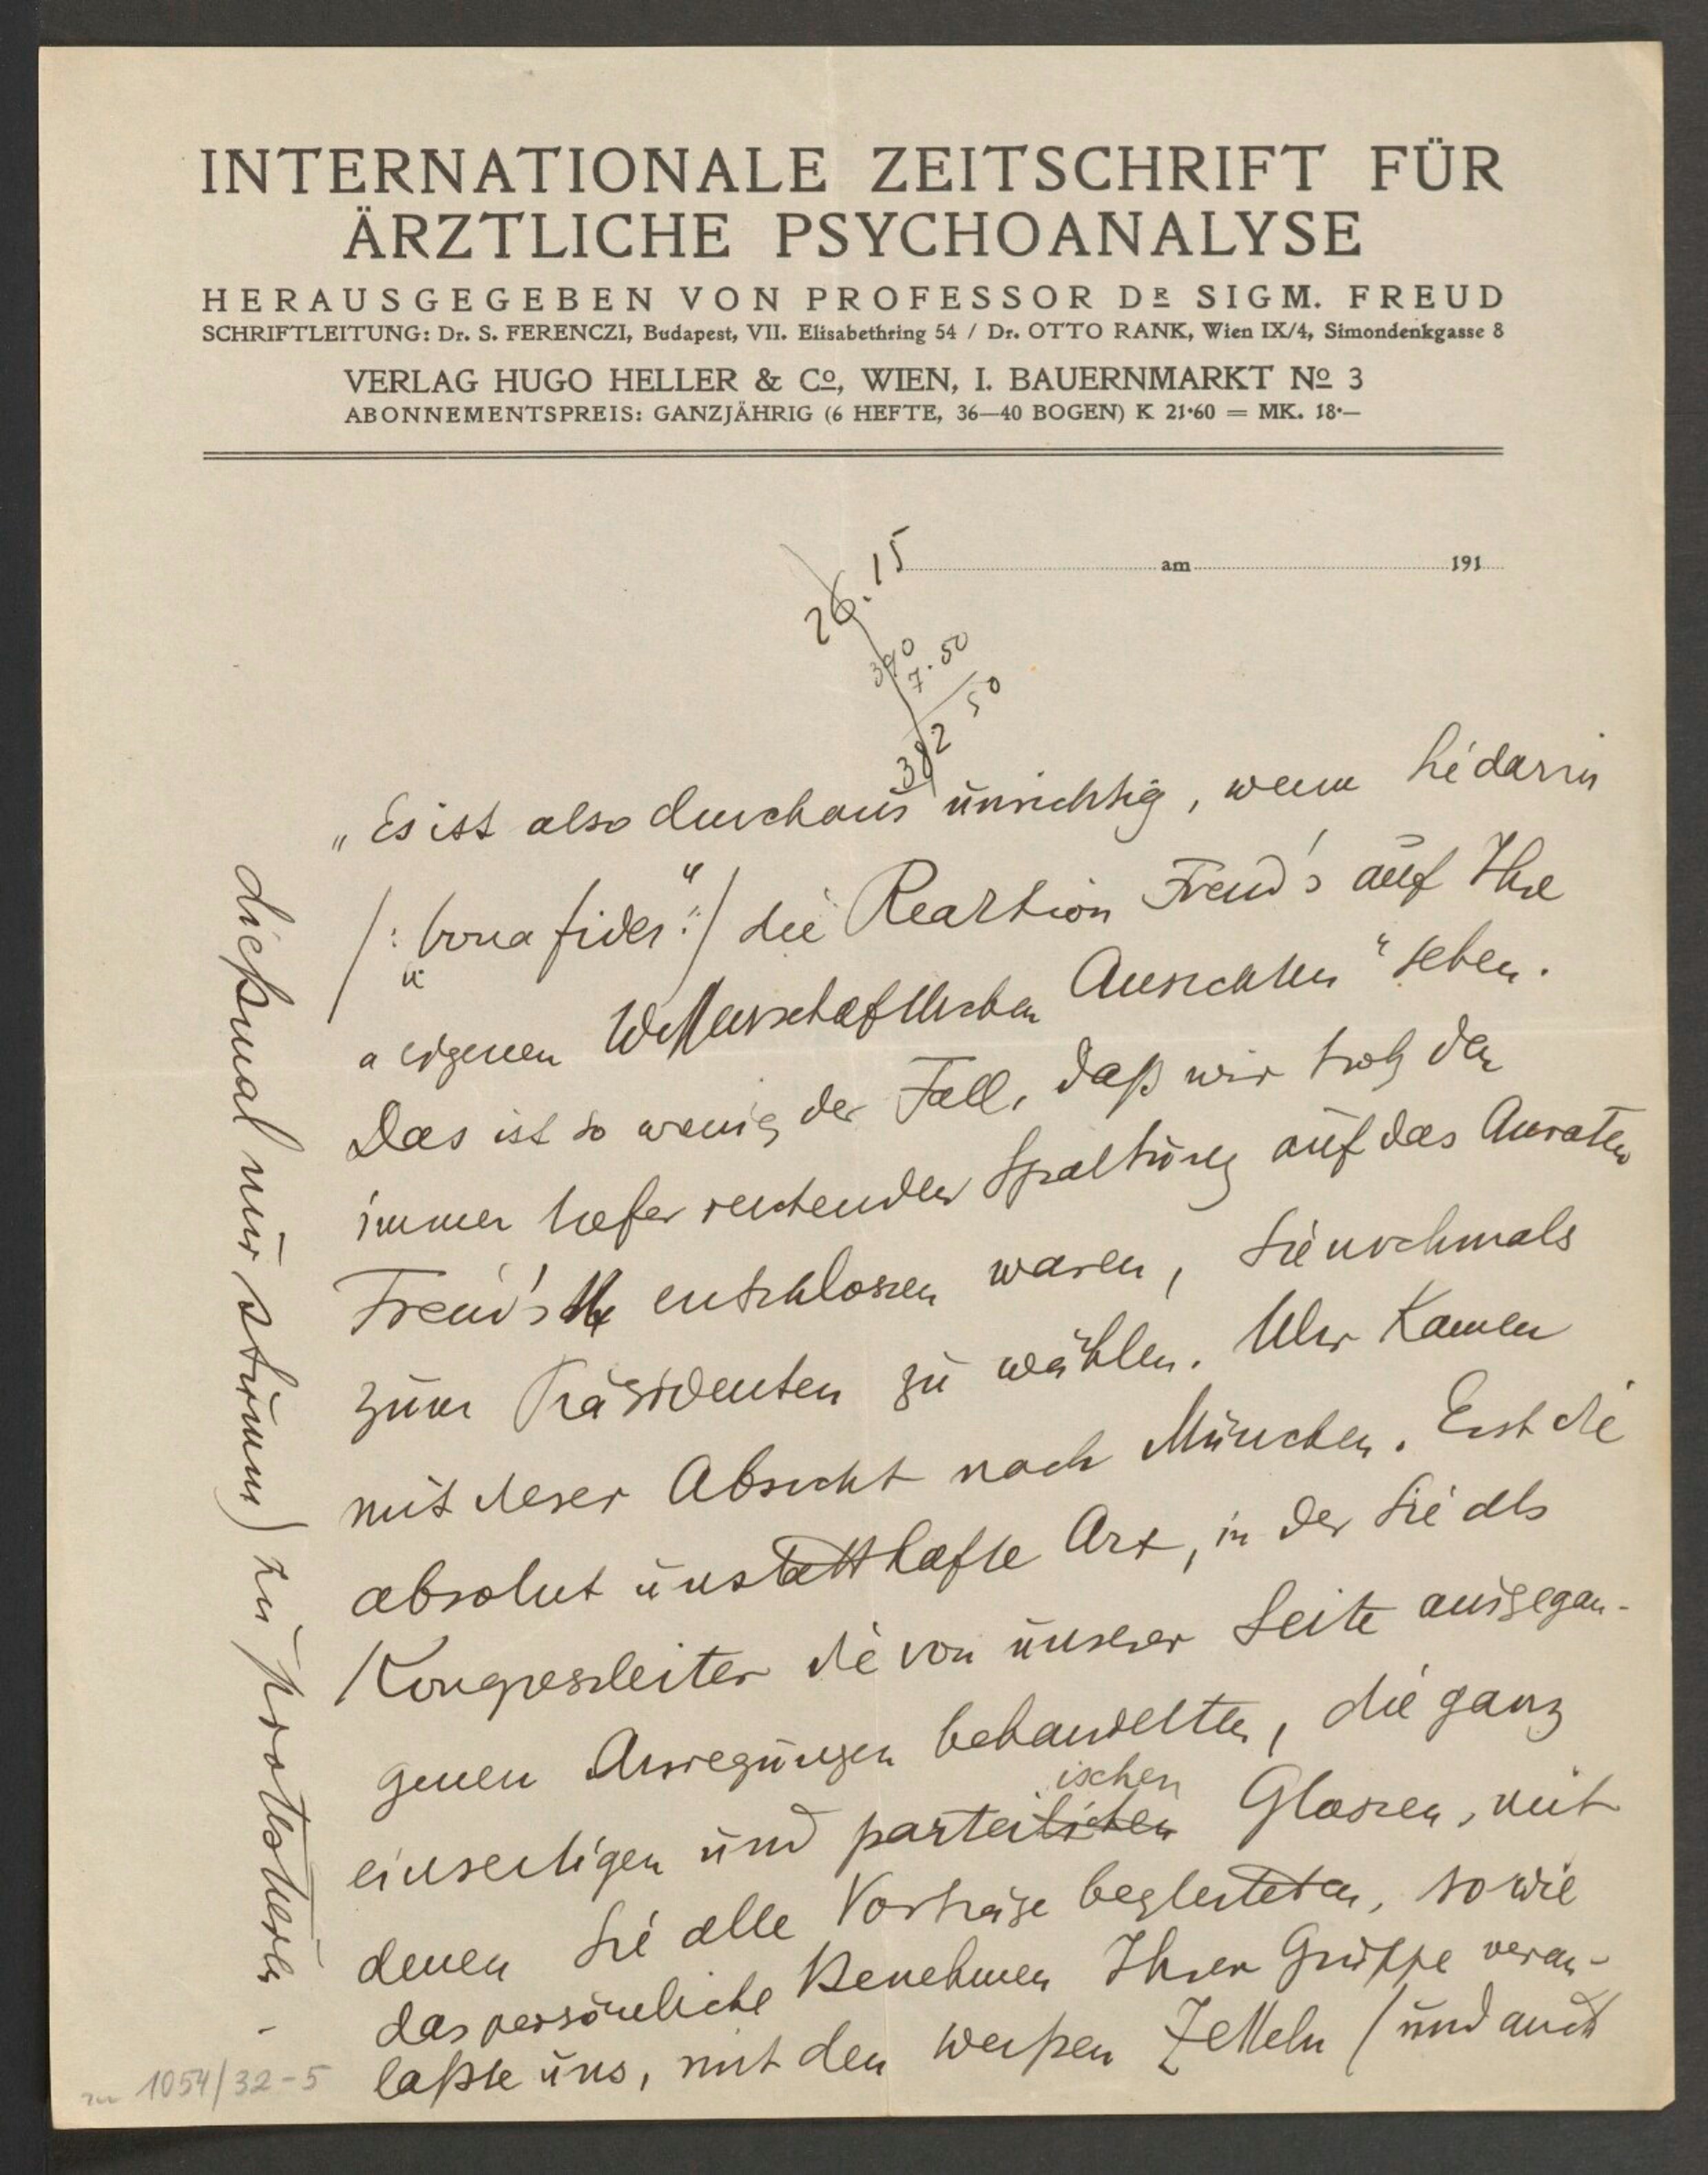 INTERNATIONALE ZEITSCHRIFT FÜR
ÄRZTLICHE PSYCHOANALYSE
HERAUSGEGEBEN VON PROFESSOR DR SIGM. FREUD
SCHRIFTLEITUNG: Dr. S. FERENCZI, Budapest, VII. Elisabethring 54 / Dr. OTTO RANK, Wien IX/4, Simondenkgasse 8
VERLAG HUGO HELLER & Co, WIEN, I. BAUERNMARKT No 3
ABONNEMENTSPREIS: GANZJÄHRIG (6 HEFTE, 36—40 BOGEN) K 21·60 = MK. 18·—
am 191
26.15
390
7.50
382 50
„Es ist also durchaus unrichtig, wenn Sie darin
/: „bona fides“ :/ die Reaktion Freud's auf Ihre
„eigenen wissenschaftlichen Ansichten“ sehen.
Das ist so wenig der Fall, daß wir trotz der
immer tiefer reichenden Spaltung auf das Anraten
Freud's entschlossen waren, Sie nochmals
zum Präsidenten zu wählen. Wir kamen
mit dieser Absicht nach München. Erst die
absolut unstatthafte Art, in der Sie als
Kongressleiter die von unserer Seite ausgegan-
genen Anregungen behandelten, die ganz
ischen
einseitigen und parteilichen Glossen, mit
denen Sie alle Vorträge begleiteten, sowie
das persönliche Benehmen Ihrer Gruppe veran-
laßte uns, mit den weißen Zetteln (und auch
dießmal nur stumm) zu protestieren. -
zu 1054/32-5